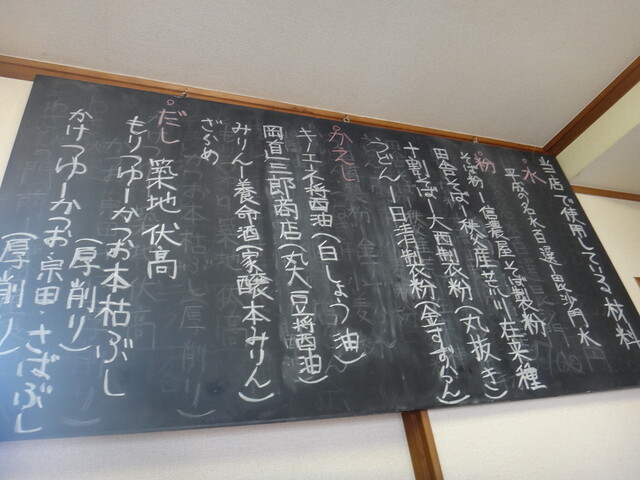 当店で使用している材料
水
平成の名水百選ー毘沙門水
粉
そば粉ー信濃屋そば製粉
田舎そばー秩父産荒川在来種
十割そばー大西製粉(丸抜き)
うどんー日清製粉(金すずらん)
かえし
キノエネ醤油(白しょう油)
岡直三郎商店(丸大豆醤油)
みりんー養命酒(家醸本みりん)
ざらめ
だし 築地伏高
もりつゆーかつお本枯ぶし
(厚削り)
かけつゆーかつお宗田・さばぶし
(厚削り)